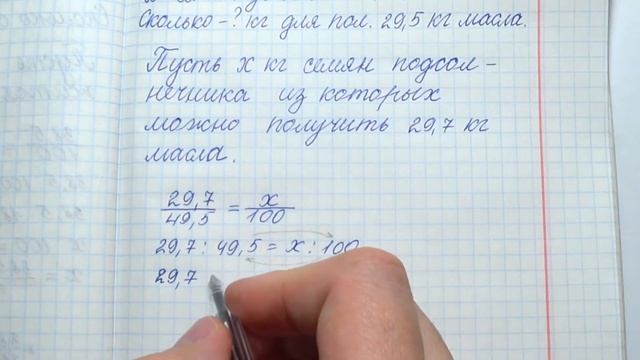 Сколько - ? кг для пол. 29,5 кг масла.
Пусть х кг семян подсол -
нечника из которых
можно получить 29,7 кг
масла.
29,7/49,5 = х/100
29,7 : 49,5 = х : 100
29,7